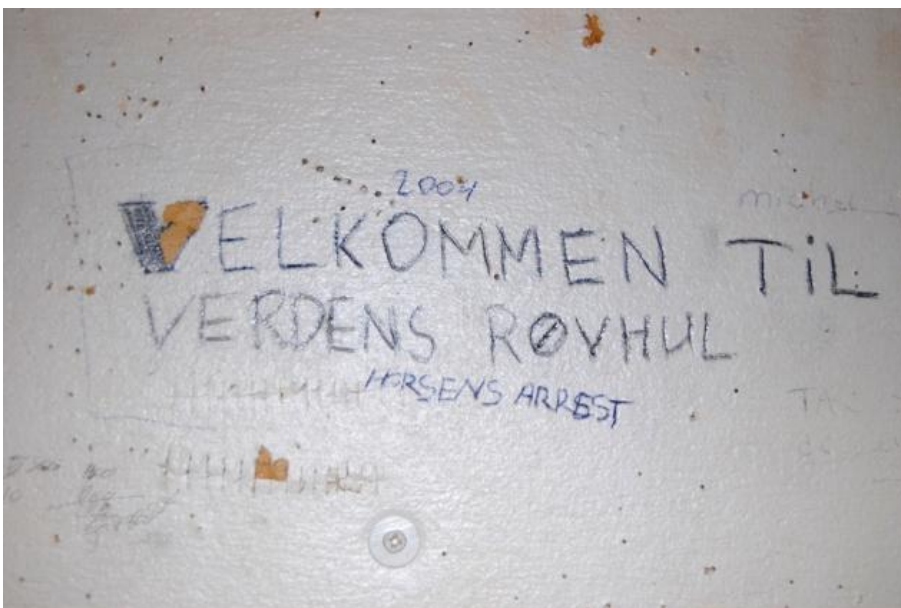 2004
VELKOMMEN TiL
VERDENS RØVHUL
HORSENS ARREST